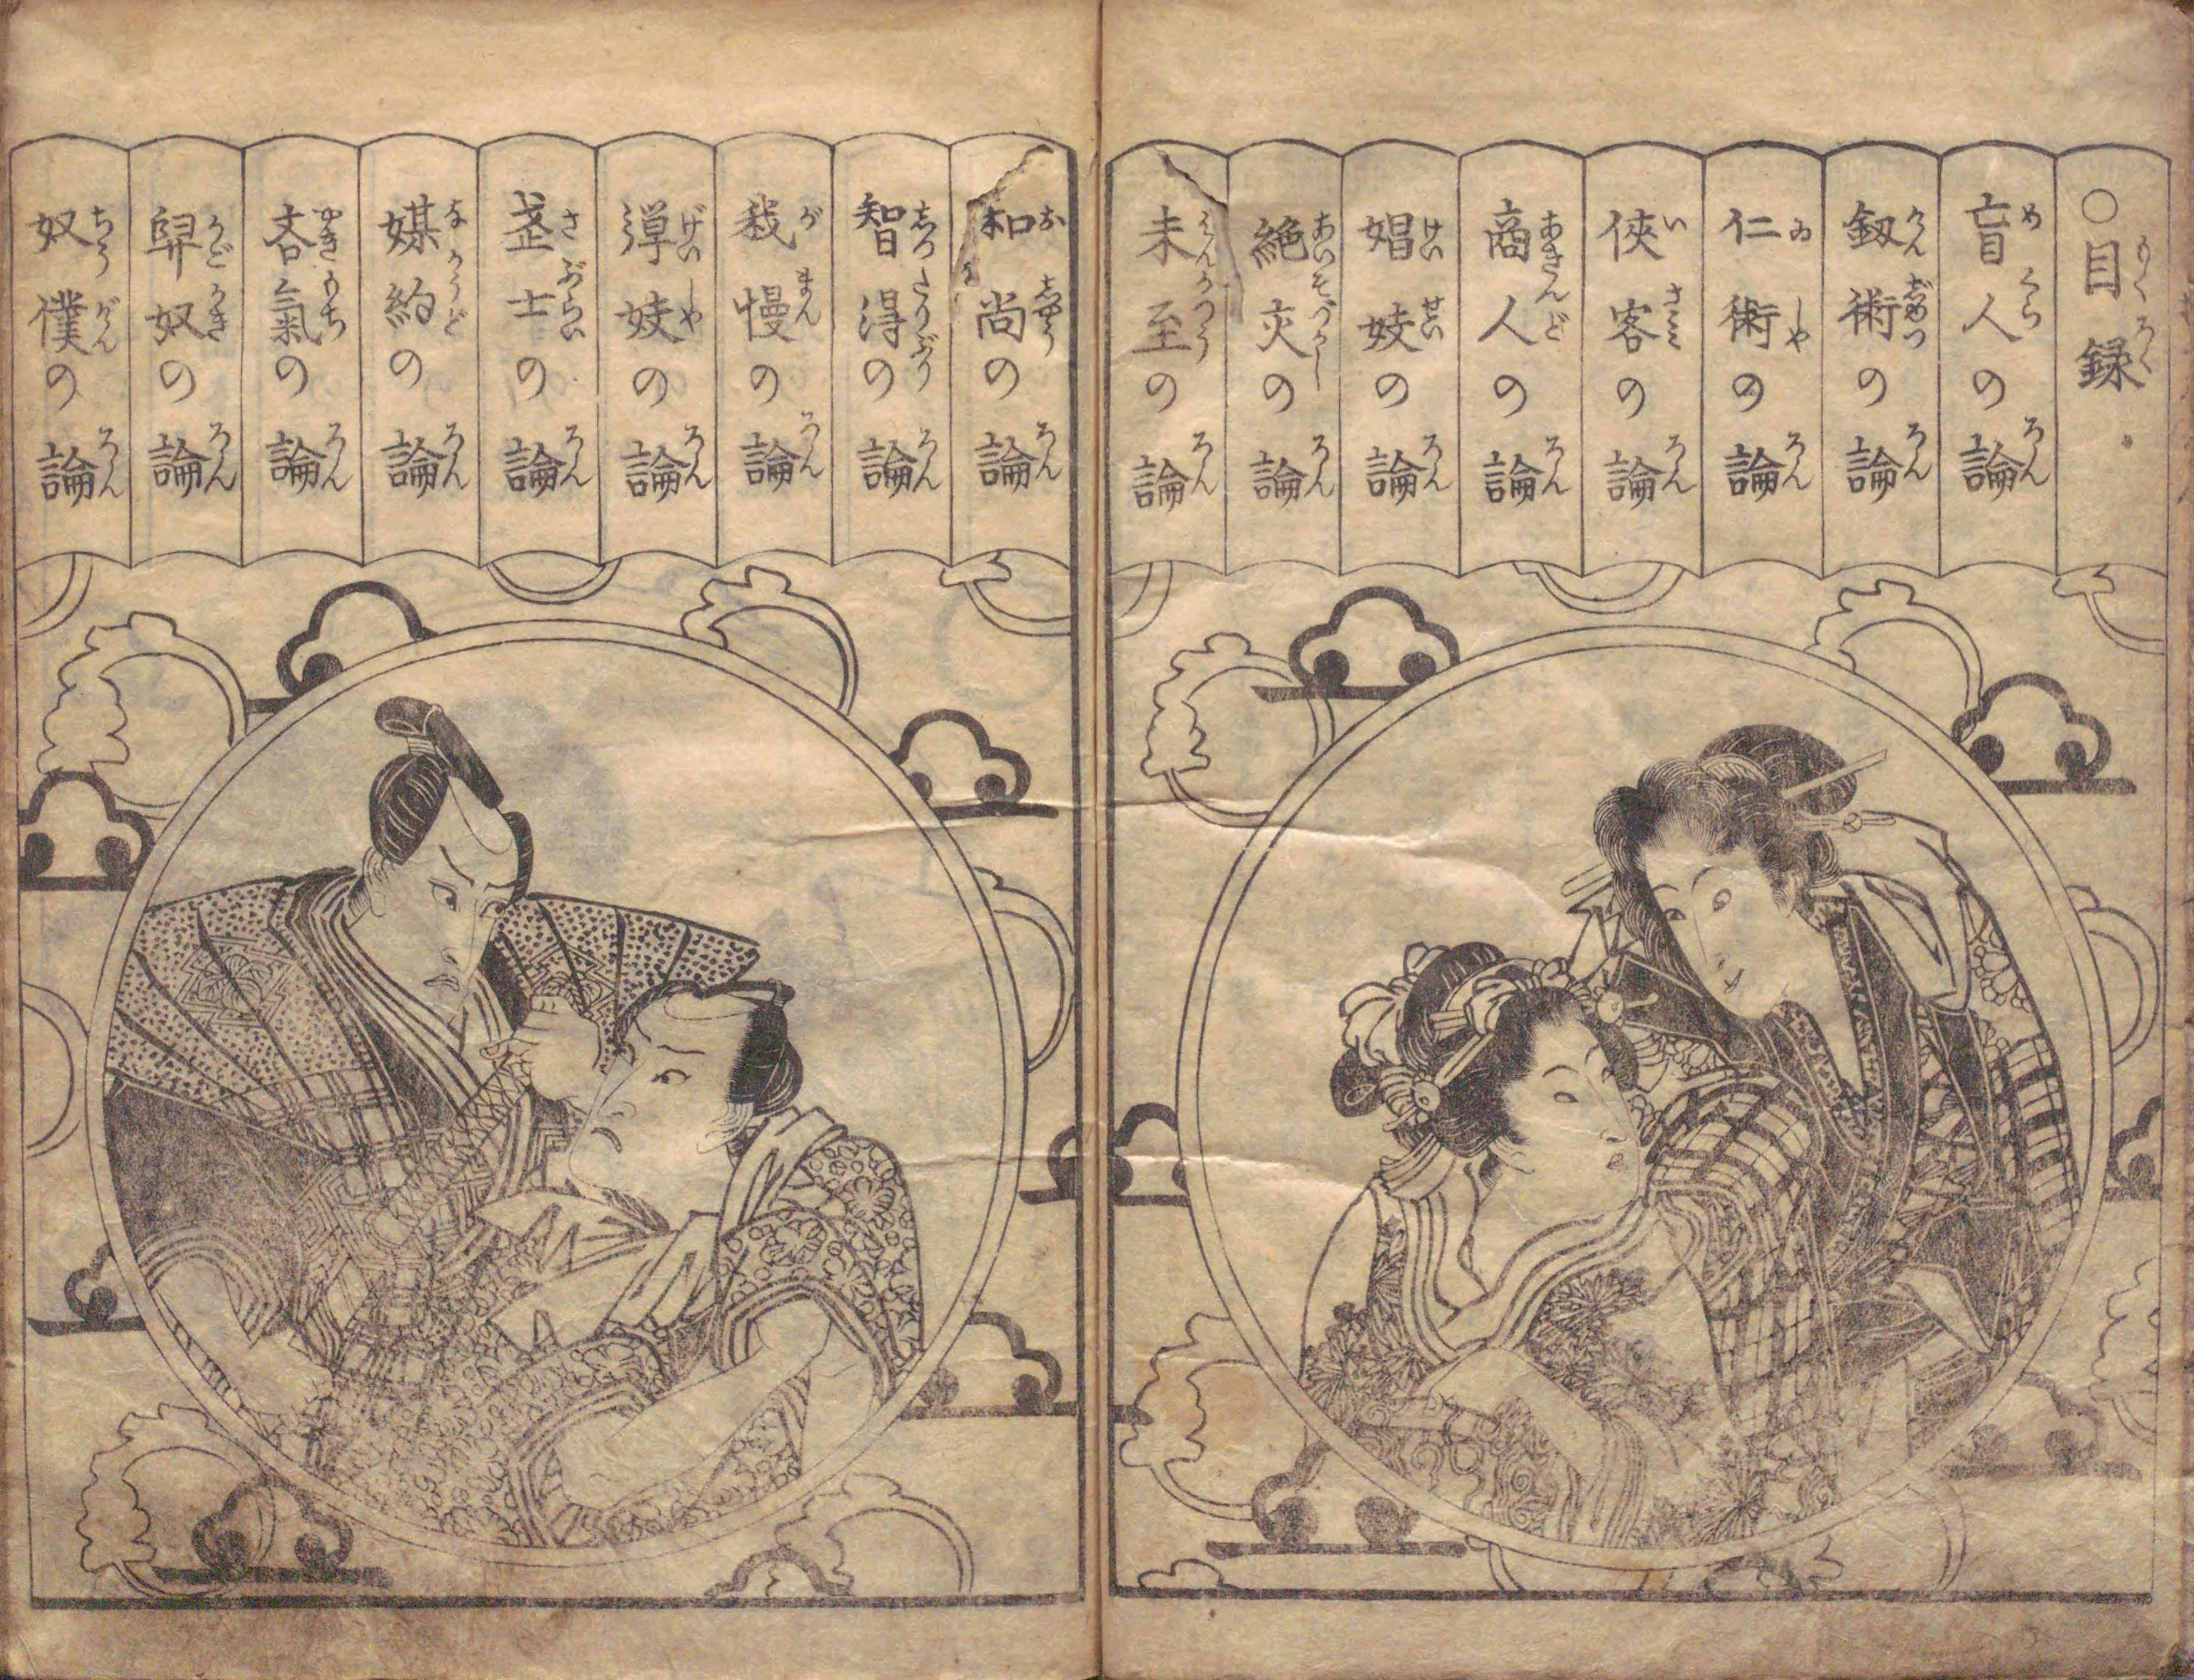 ○目録
盲人の論
釼術の論
仁術の論
侠客の論
商人の論
娼妓の論
絶夾の論
未至の論
和尚の論
智淂の論
我慢の論
弾妓の論
士の論
媒約の論
吝氣の論
奴の論
奴僕の論